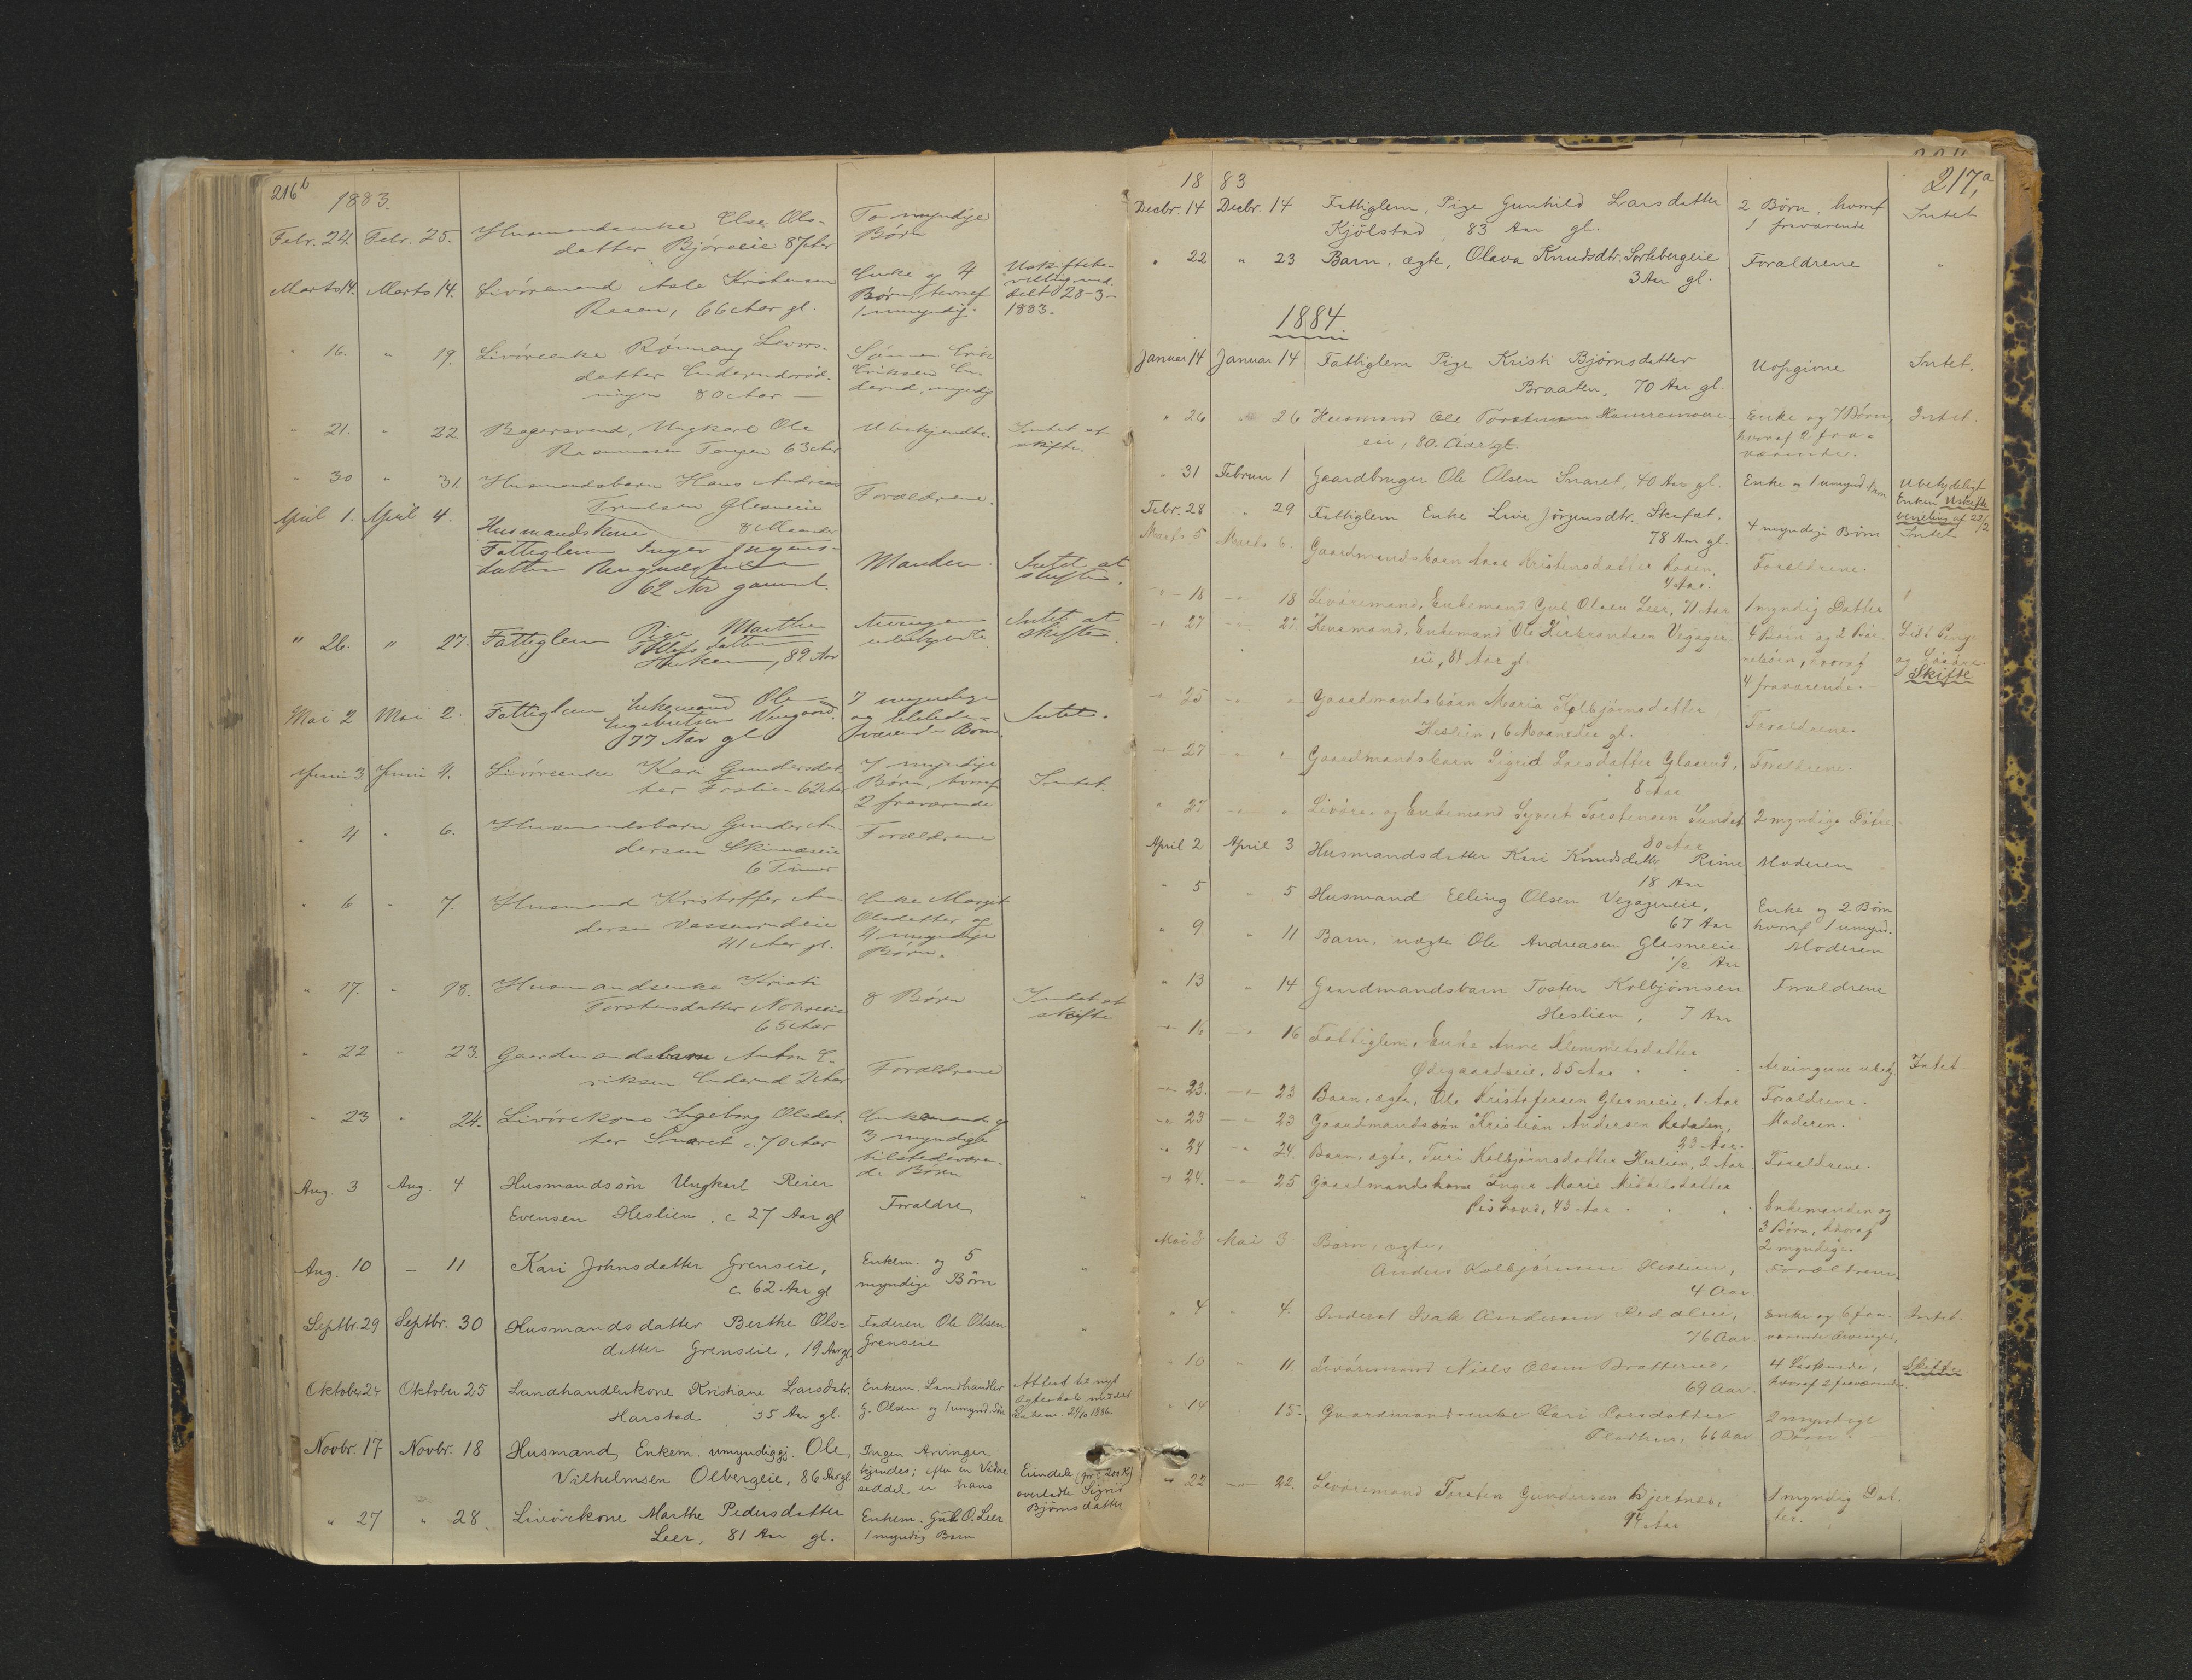 216b
1883.
Febr. 24. Febr. 25. Husmandsenke Else Ols-
datter Björeeie 87 Aar
To myndige
Börn
Marts 14. Marts 14. Livöremand Asle Kristensen
66 Aar gl.
Enke og 4
Börn, hvoraf
1 umyndig.
28-3-
1883.
" 16. " 19. Livöreenke Rönnaug Levors-
datter
80 Aar —
Sönnen Erik
Eriksen En-
derud, myndig
" 21. " 22 Ungkarl Ole
Rasmussen Tangen 63 Aar
Ubekjendte.
Intet at
skifte.
" 30 " 31. Husmandsbarn Hans Andreas
Truelsen Glesneeie
8 Maaneder
Forældrene.
April 1. April 4. Husmandskone
Fattiglem Inger
datter
62 Aar gammel.
Manden.
Intet at
skifte.
" 26. " 27. Fattiglem Pige Marthe
datter
82 Aar
Arvingene
Intet at
skifte
Mai 2 Mai 2. Fattiglem Enkemand Ole
Engebretsen
77 Aar gl
7 myndige
og tilstede-
værende Börn.
Intet.
Juni 3. Juni 4. Livöreenke Kari Gundersdat-
ter 62 Aar
7 myndige
Börn, hvoraf
2 fraværende
Intet.
" 4 " 6. Husmandsbarn Gunder An-
dersen Skinneseie
6 Timer
Forældrene
" 6 " 7. Husmand Kristoffer An-
dersen Vassenrudeie
41 Aar gl.
Enke Margit
Olsdatter og
4 umyndige
Börn.
" 17. " 18. Husmandsenke Kristi
Torstensdatter
65 Aar
8 Börn
Intet at
skifte
" 22 " 23. Gaardmandsbarn Anton E-
riksen Enderud 2 Aar
Forældrene
" 23 " 24. Livörekone Ingeborg Olsdat-
ter Snaret c. 70 Aar
Enkemand og
3 myndige
tilstedeværen-
de Börn
Aug. 3 Aug. 4 Husmandssön Ungkarl Reier
Evensen Heslien. c 27 Aar gl
Foraldre
"
Aug. 10 — 11 Kari Johnsdatter Grenseie,
c. 62 Aar gl
Enkem. og 5
myndige Börn
"
Septbr. 29 Septbr. 30 Husmandsdatter Berthe Ols=
datter Grenseie, 19 Aar gl.
Faderen Ole Olsen
Grenseie
"
Oktober 24 Oktober 25 Landhandlerkone Kristiane Larsdtr.
Harstad 35 Aar gl.
Enkem. Landhandler
G. Olsen og 1 umynd. Sön
Attest til nyt
Ægteskab meddelt
Enkem. 21/10 1886
Novbr. 17 Novbr. 18 Husmand, Enkem. umyndiggj. Ole
Vilhelmsen Olbergeie, 86 Aar gl
Ingen Arvinger
kjendes; efter en Vidne
seddel er hans
Eiendele (gr. c. 200 Kr)
overladte Sigrid
Björnsdatter
" 27 " 28 Livörekone Marthe Pedersdatter
Leer, 81 Aar gl.
Enkem. Gul O. Leer
1 myndig Barn
217,a
18 83
Decbr. 14 Decbr. 14 Fattiglem, Pige Gunhild Larsdatter
Kjölstad, 83 Aar gl.
2 Börn, hvoraf
1 fraværende
Intet
" 22 " 23 Barn, ægte, Olava Knudsdtr. Sorteberg­eie
3 Aar gl.
Foraldrene
"
1884
Januar 14 Januar 14 Fattiglem Pige Kristi Björnsdatter
Braaten, 70 Aar gl.
Uopgivne
Intet.
" 26 26 Husmand Ole Torstensen
eie, 80 Aar gl.
Enke og 7 Börn,
hvoraf 2 fra-
værende.
Intet.
" 31 Februar 1 Gaardbruger Ole Olsen Snaret, 40 Aar gl.
Enke og 1 umynd. Barn
Ubetydeligt
Enken Uskifte
bevilling af 22/2
Febr. 28 " 29 Fattiglem Enke Live Jörgensdtr. Skafat.
78 Aar gl.
4 myndige Börn
Intet
Marts 5 Marts 6. Gaardmandsbarn Anne Kristensdatter
4 Aar.
Foraldrene.
-"- 18 -"- 18 Livöremand, Enkemand Gul Olsen Leer, 71 Aar
1 myndig Datter
-"- 27 -"- 27. Husmand, Enkemand Ole Herbrandsen
eie, 81 Aar gl.
4 Börn og 2 Bör-
nebörn, hvoraf
4 fraværende.
Lidt Penge
og Lösöre.
Skifte
-"- 25 -"- " Gaardmandsbarn Maria Kolbjörnsdatter
Heslien, 6 Maaneder gl.
Foraldrene.
-"- 27 -"- " Gaardmandsbarn Sigrid Larsdatter Glaarud,
8 Aar
Foraldrene.
" 27 -"- " Livöre- og Enkemand Syvert Torstensen Sundet
80 Aar
2 myndige Dötre.
April 2 April 3 Husmandsdatter Kari Knudsdatter Rime
18 Aar
Moderen
" 5 " 5 Husmand Elling Olsen
67 Aar
Enke og 2 Börn
hvoraf 1 umynd.
" 9 " 11 Barn, uægte Ole Andreasen Glesneeie
1/2 Aar
Moderen
" 13 " 14 Gaardmandsbarn Tosten Kolbjörnsen
Heslien, 7 Aar
Forældrene
-"- 16 -"- 16 Fattiglem, Enke Anne Klemmetsdatter
Ödegaardseie, 85 Aar
Arvingerne ubekj.
Intet
-"- 23. -"- 23 Barn, ægte, Ole Kristofersen Glesneeie, 1 Aar
Foraldrene.
-"- 23 -"- 23 Gaardmandssön Kristian Andersen
23 Aar.
Moderen.
-"- 24 -"- 24. Barn, ægte, Turi Kolbjörnsdatter Heslien, 2 Aar.
Foraldrene.
-"- 24. -"- 25 Gaardmandskone Inger Marie Mikkelsdatter
43 Aar
Enkemanden og
3 Börn, hvoraf
2 myndige.
Mai 3 Mai 3 Barn, ægte,
Anders Kolbjörnsen Heslien,
4 Aar
Forældrene.
" 4 " 4. Inderst Isak Andersen
76 Aar.
Enke og 6 fra-
værende Arvinger.
Intet.
" 10 " 11. Livöremand Niels Olsen Bratterud,
69 Aar.
4 Söskende,
hvoraf 2 fraværende.
Skifte
" 14 " 15. Gaardmandsenke Kari Larsdatter
66 Aar
2 myndige
Börn.
" 22 -"- 22. Livöremand Torsten Gundersen Bjertnes,
94 Aar
1 myndig Dat-
ter.